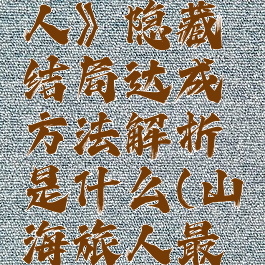 人》隐藏
结局达成
方法解析
是什么(山
海旅人最